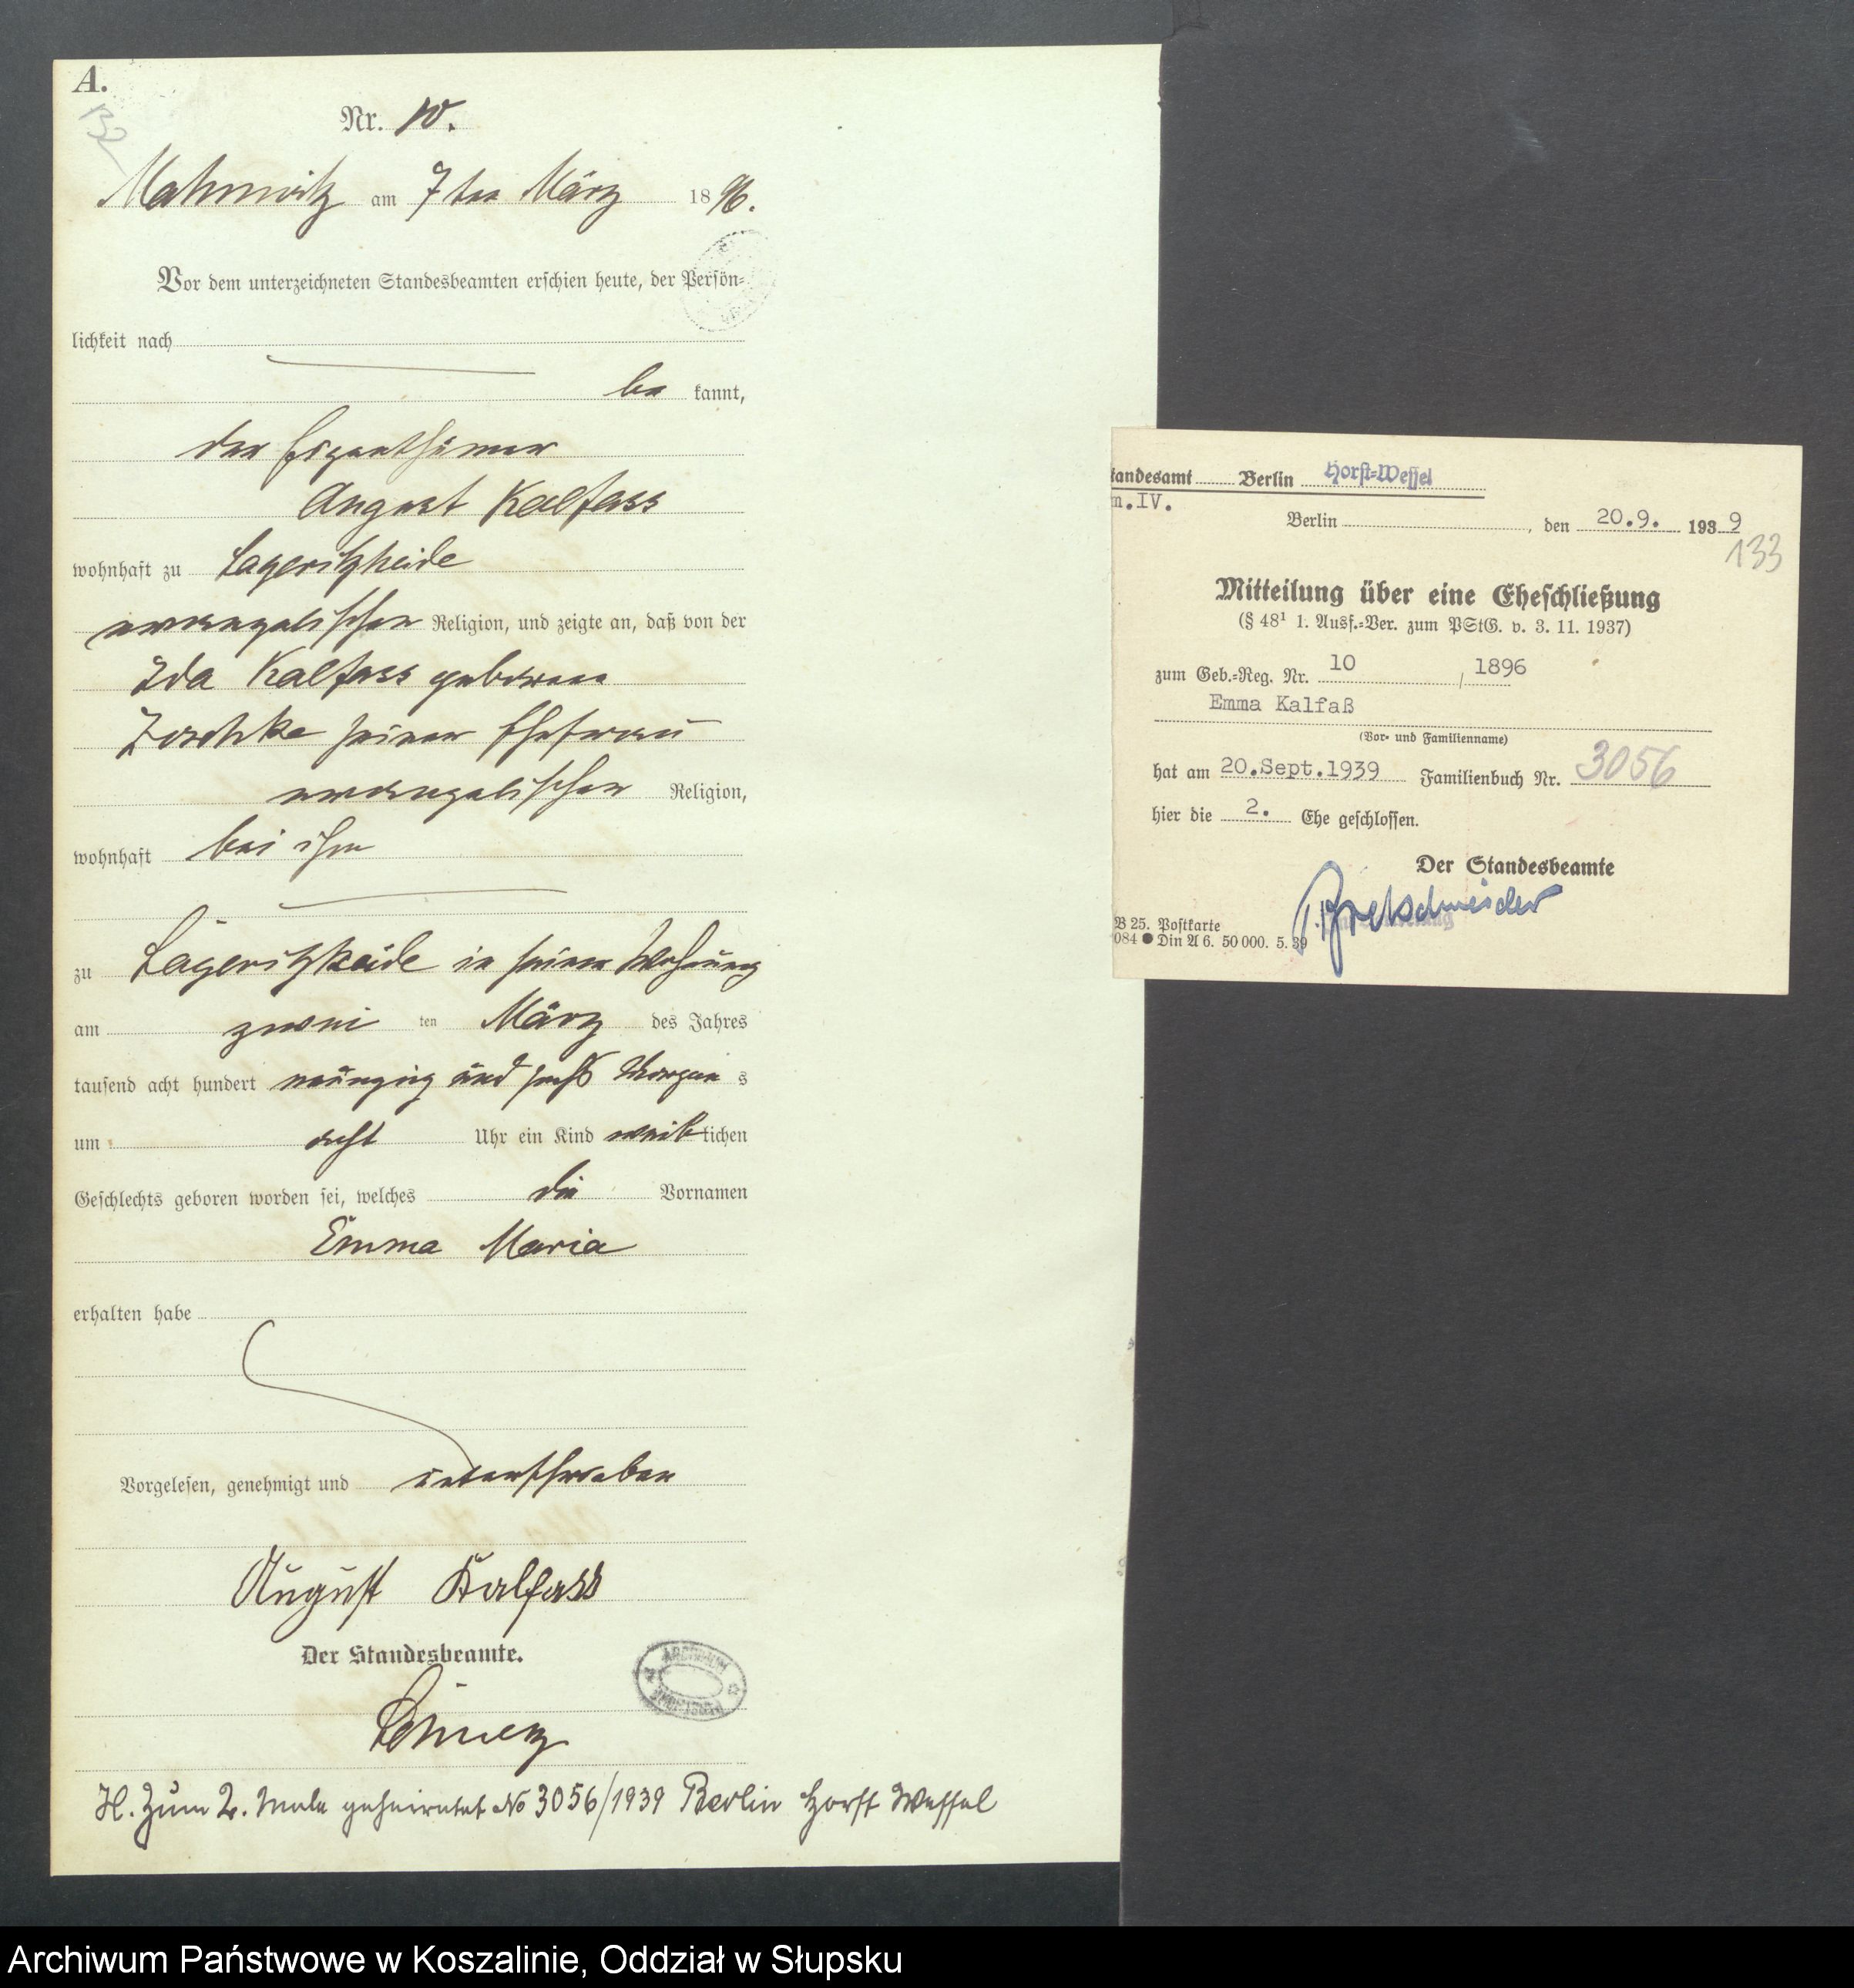 A.
132
Nr. 10.
Mahnwitz am 7ten März 1896.
Vor dem unterzeichneten Standesbeamten erschien heute, der Persön-
lichkeit nach
be kannt,
der Eigenthümer
August Kalfass
wohnhaft zu Lageritzheide
evangelischer Religion, und zeigte an, daß von der
Ida Kalfass geborene
Zoschke seiner Ehefrau
evangelischer Religion,
wohnhaft bei ihm
zu Lageritzheide in seiner Wohnung
am zwei ten März des Jahres
tausend acht hundert neunzig und sechs Morgens
um acht Uhr ein Kind weiblichen
Geschlechts geboren worden sei, welches die Vornamen
Emma Maria
erhalten habe
Vorgelesen, genehmigt und unterschrieben
August Kalfass
Der Standesbeamte.
H. Zum 2. Male geheiratet No 3056/1939 Berlin Horst Wessel
tandesamt Berlin Horst-Wessel
m.IV.
Berlin , den 20.9. 1939
133
Mitteilung über eine Eheschließung
(§ 48¹ 1. Ausf.-Ver. zum PStG. v. 3. 11. 1937)
zum Geb.-Reg. Nr. 10 / 1896
Emma Kalfaß
(Vor- und Familienname)
hat am 20.Sept.1939 Familienbuch Nr. 3056
hier die 2. Ehe geschlossen.
Der Standesbeamte
Bretschneider
B 25. Postkarte
084 ● Din A 6. 50 000. 5. 39
Archiwum Państwowe w Koszalinie, Oddział w Słupsku